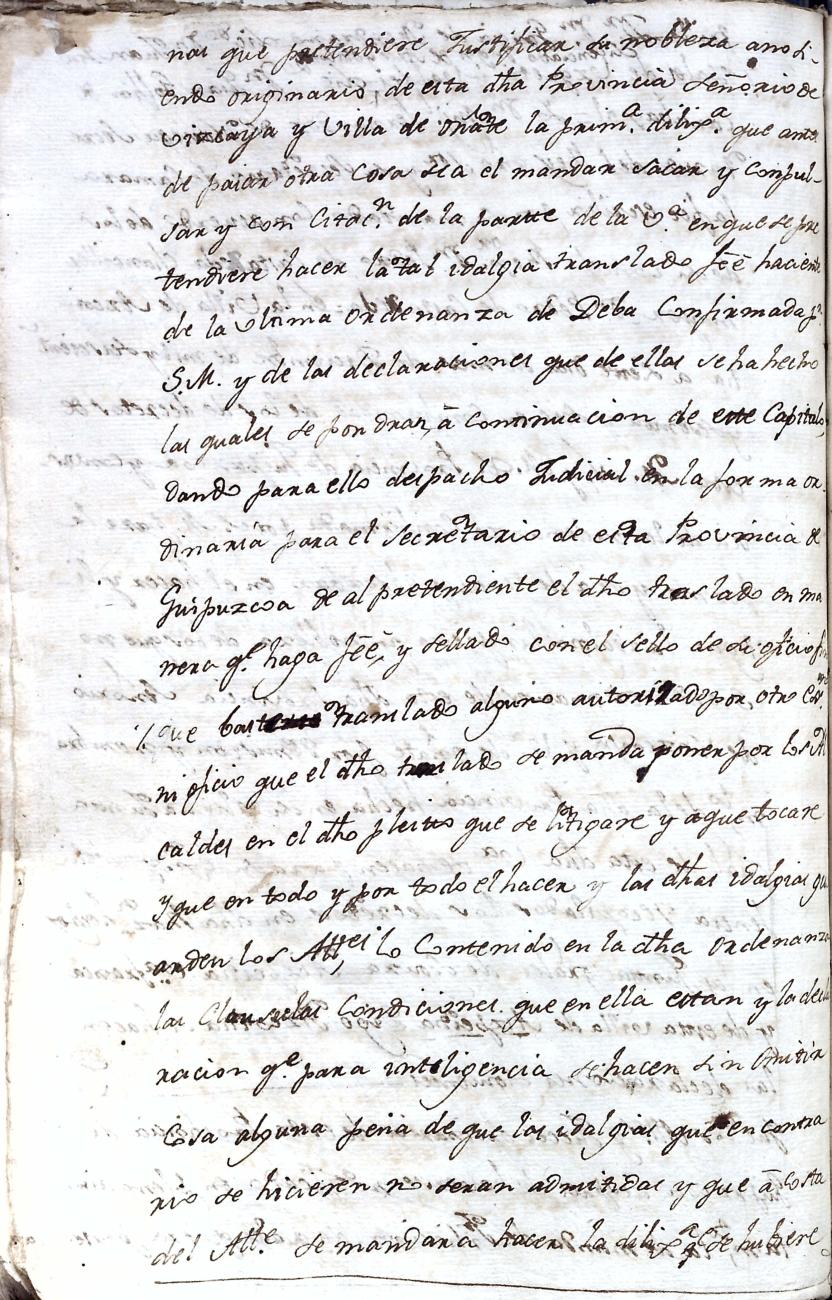 nos que pretendiere Justificar su nobleza ano si-
endo originario, de esta dha Provincia Señorio de
Vizcaya y Villa de oñate la prim.ª dilix.ª que ante
de pasar otra Cosa sea el mandar sacar y Conpul-
sar y con Citac.n de la parte de la V.ª en que se pre
tendiere hacer la tal idalgia translado feé haciente
de la Ultima ordenanza de Deba Confirmada p.r
S.M. y de las declaraciones que de ellas se ha hecho
las quales se pondran, á continuacion de este Capitulo,
dando para ello despacho Judicial en la forma or-
dinaria para el secretario de esta Provincia de
Guipuzcoa de al pretendiente el dho traslado en ma
nera q.e haga feé, y sellado con el sello de su oficio sin
que baste translado alguno autorizado por otro
ni oficio que el dho traslado se manda poner por los Al
caldes en el dho pleito que se litigare y aque tocare
y que en todo y por todo el hacer y las dhas idalgias gu
arden los Att.es lo Contenido en la dha ordenanza
las Clausulas Condiciones que en ella estan y la decla
racion q.e para inteligencia se hacen sin Omitir
Cosa alguna pena de que las idalgias que en contra
rio se hicieren no seran admitidas y que á Costa
del Att.e se mandara hacer la dilix.ª q.e se hubiere